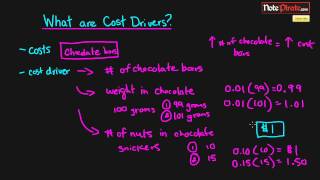 NotePirate.com
What are Cost Drivers?
- costs Chocolate bars
↑ # of chocolate bars = ↑ cost
- cost driver → # of chocolate bars
→ weight in chocolate
100 grams ① 99 grams
② 101 grams
0.01 (99) = 0.99
0.01 (101) = 1.01
$1
→ # of nuts in chocolate
snickers ① 10
② 15
0.10 (10) = $1
0.15 (15) = 1.50